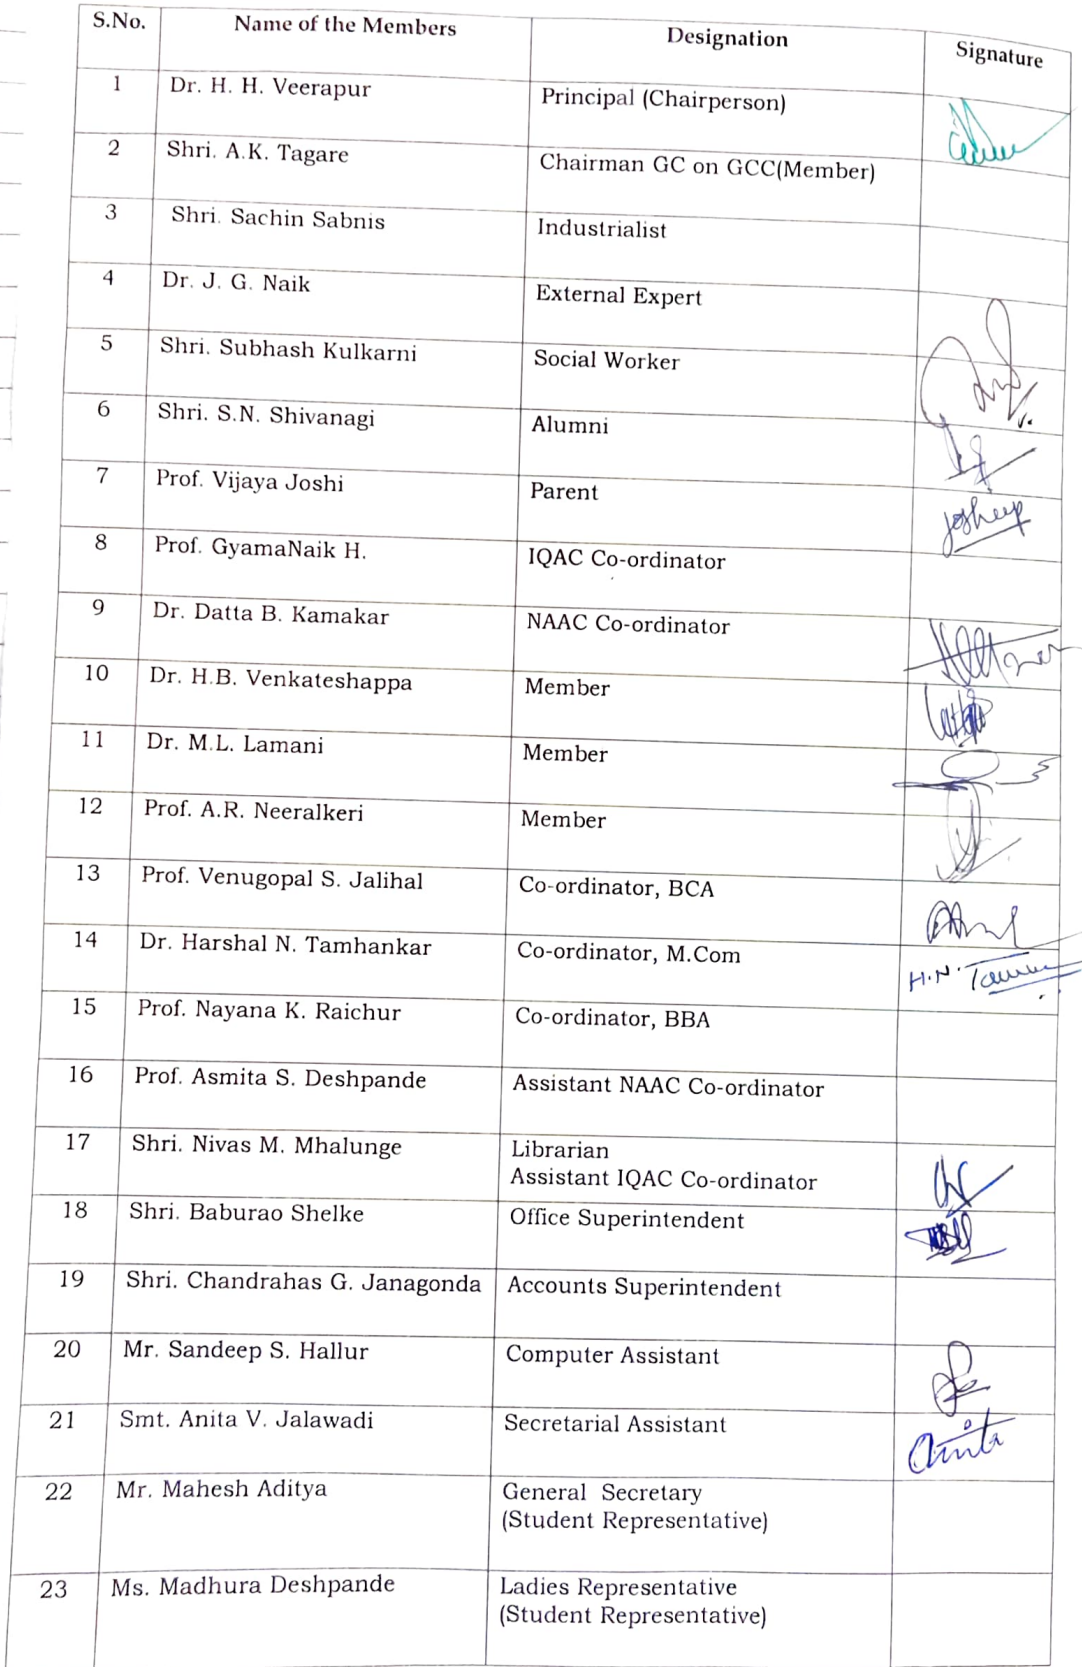 S.No. Name of the Members Designation Signature
1 Dr. H. H. Veerapur Principal (Chairperson)
2 Shri. A.K. Tagare Chairman GC on GCC(Member)
3 Shri. Sachin Sabnis Industrialist
4 Dr. J. G. Naik External Expert
5 Shri. Subhash Kulkarni Social Worker
6 Shri. S.N. Shivanagi Alumni
7 Prof. Vijaya Joshi Parent
8 Prof. GyamaNaik H. IQAC Co-ordinator
9 Dr. Datta B. Kamakar NAAC Co-ordinator
10 Dr. H.B. Venkateshappa Member
11 Dr. M.L. Lamani Member
12 Prof. A.R. Neeralkeri Member
13 Prof. Venugopal S. Jalihal Co-ordinator, BCA
14 Dr. Harshal N. Tamhankar Co-ordinator, M.Com H.N.
15 Prof. Nayana K. Raichur Co-ordinator, BBA
16 Prof. Asmita S. Deshpande Assistant NAAC Co-ordinator
17 Shri. Nivas M. Mhalunge Librarian
Assistant IQAC Co-ordinator
18 Shri. Baburao Shelke Office Superintendent
19 Shri. Chandrahas G. Janagonda Accounts Superintendent
20 Mr. Sandeep S. Hallur Computer Assistant
21 Smt. Anita V. Jalawadi Secretarial Assistant Anita
22 Mr. Mahesh Aditya General Secretary
(Student Representative)
23 Ms. Madhura Deshpande Ladies Representative
(Student Representative)